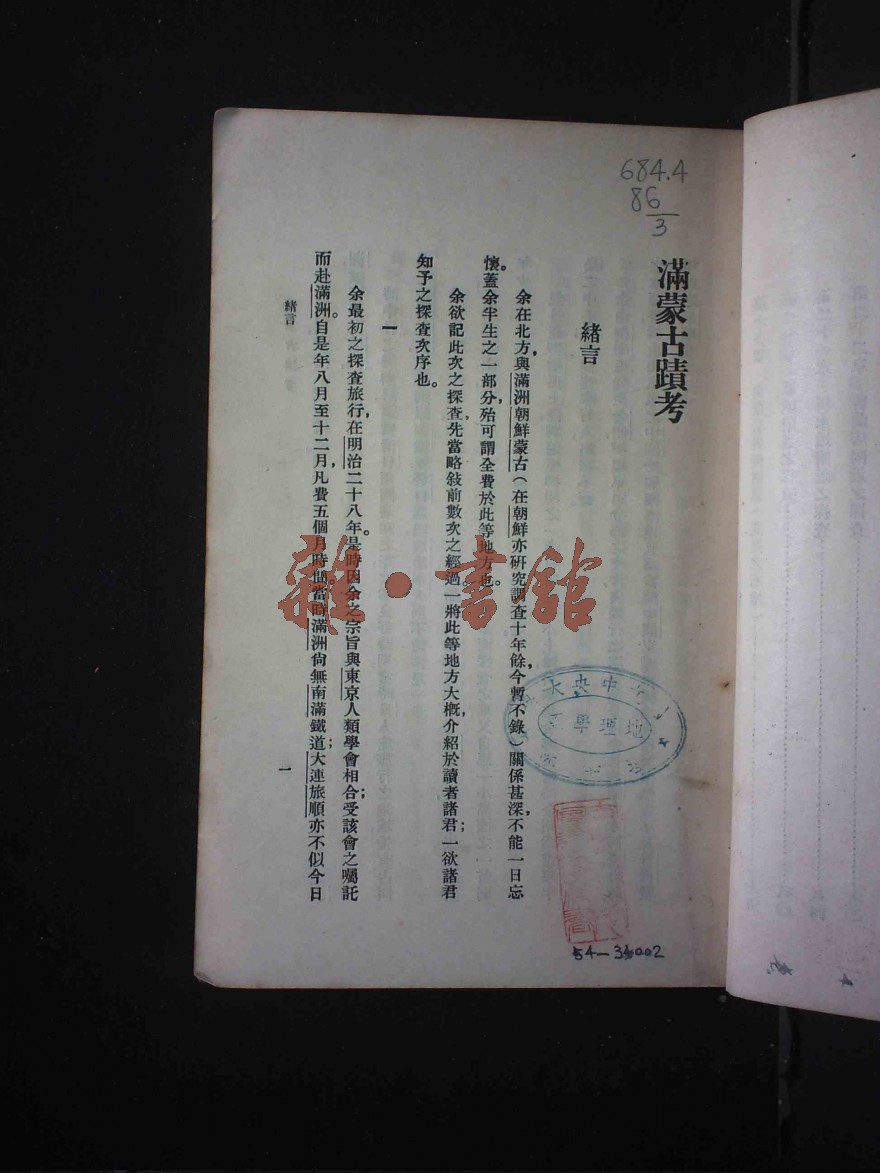 684.4
86
3
滿蒙古蹟考
緒言
余在北方，與滿洲朝鮮蒙古（在朝鮮亦研究調查十年餘今暫不錄）關係甚深，不能一日忘
懷。蓋余半生之一部分殆可謂全費於此等地方也。
余欲記此次之探查先當略敍前數次之經過。一將此等地方大概，介紹於讀者諸君；一欲諸君
知予之探查次序也。
一
余最初之探查旅行，在明治二十八年。是時因余之宗旨與東京人類學會相合；受該會之囑託
而赴滿洲。自是年八月至十二月，凡費五個月時間。當時滿洲尙無南滿鐵道；大連旅順亦不似今日
緒言
一
雜·書館
中央大
地理學
54-34002